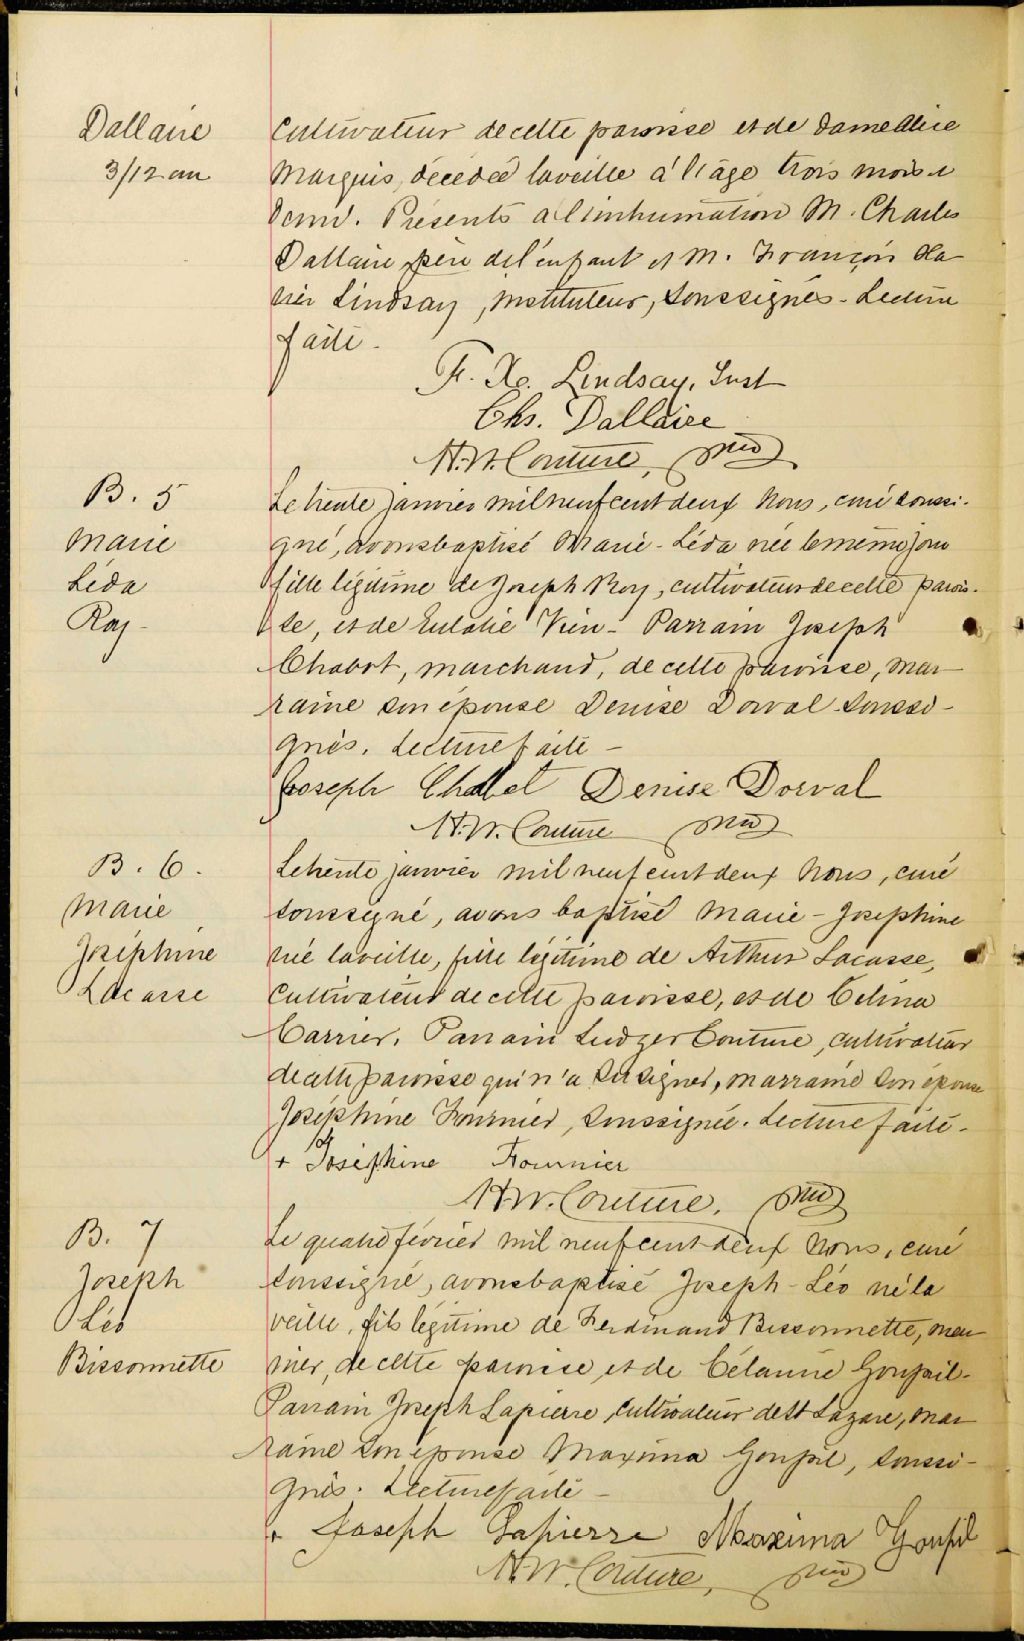 Dallaire
3/12 an
cultivateur de cette paroisse et de Dame Alice
Marquis, décédée la veille à l'âge trois mois et
demi. Présents à l'inhumation M. Charles
Dallaire père de l'enfant et M. François Xa-
vier Lindsay, instituteur, soussignés - Lecture
faite.
F. X. Lindsay, Inst
Chs. Dallaire
H.W. Couture, ptre
B. 5
Marie
Léda
Roy -
Le trente janvier mil neuf cent deux Nous, curé soussi-
gné, avons baptisé Marie-Léda née le même jour
fille légitime de Joseph Roy, cultivateur de cette parois-
se, et de Eulalie Vien - Parrain Joseph
Chabot, marchand, de cette paroisse, mar-
raine son épouse Denise Dorval soussi-
gnés. Lecture faite -
Joseph Chabot Denise Dorval
H.W. Couture ptre
B. 6.
Marie
Joséphine
Lacasse
Le trente janvier mil neuf cent deux Nous, curé
soussigné, avons baptisé Marie-Josephine
née la veille, fille légitime de Arthur Lacasse,
cultivateur de cette paroisse, et de Celina
Carrier. Parrain Ludger Couture, cultivateur
de cette paroisse qui n'a su signer, marraine son épouse
Joséphine Fournier, soussignée. Lecture faite -
+ Joséphine Fournier
H.W. Couture, ptre
B. 7
Joseph
Léo
Bissonnette
Le quatre février mil neuf cent deux Nous, curé
soussigné, avons baptisé Joseph-Léo né la
veille, fils légitime de Ferdinand Bissonnette, meu-
nier, de cette paroisse et de Célanire Goupil -
Parrain Joseph Lapierre, cultivateur de St Lazare, mar-
raine son épouse Maxima Goupil, soussi-
gnés. Lecture faite -
+ Joseph Lapierre Maxima Goupil
H.W. Couture, ptre